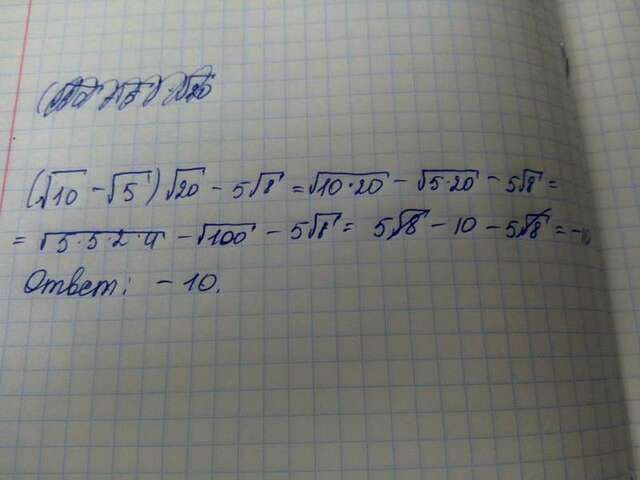 (√10 - √5)√20 - 5√8 = √10·20 - √5·20 - 5√8 =
= √5·5·2·4 - √100 - 5√8 = 5√8 - 10 - 5√8 = -10
Ответ: - 10.